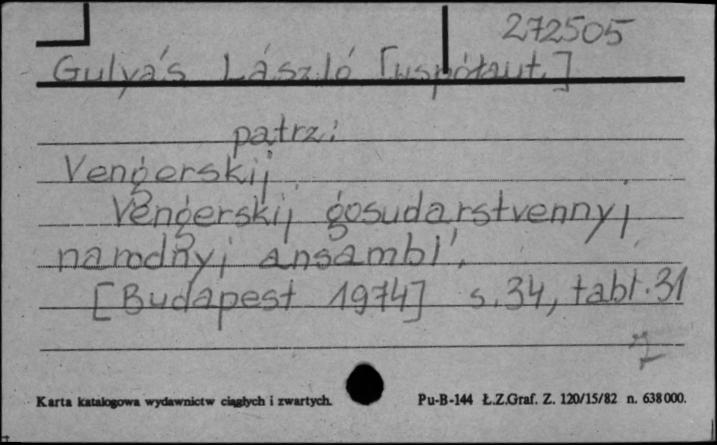 272505
Gulyás László [współaut.]
patrz:
Vengerskij
Vengerskij gosudarstvennyj
narodnyj ansambl',
[Budapest 1974] s.34, tabl.31
7
Karta katalogowa wydawnictw ciągłych i zwartych.
Pu-B-144 Ł.Z.Graf. Z. 120/15/82 n. 638000.